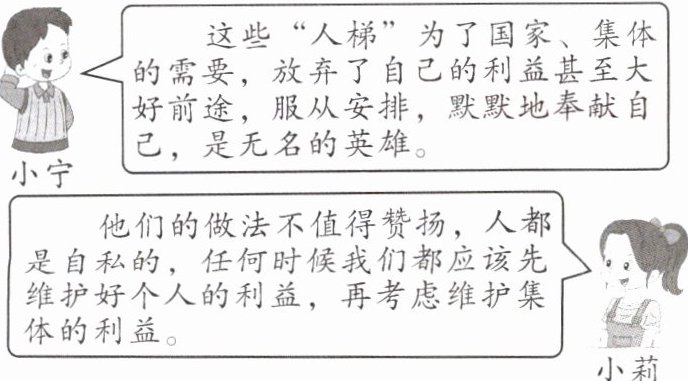 这些“人梯”为了国家、集体
的需要，放弃了自己的利益甚至大
好前途，服从安排，默默地奉献自
己，是无名的英雄。
小宁
他们的做法不值得赞扬，人都
是自私的，任何时候我们都应该先
维护好个人的利益，再考虑维护集
体的利益。
小莉